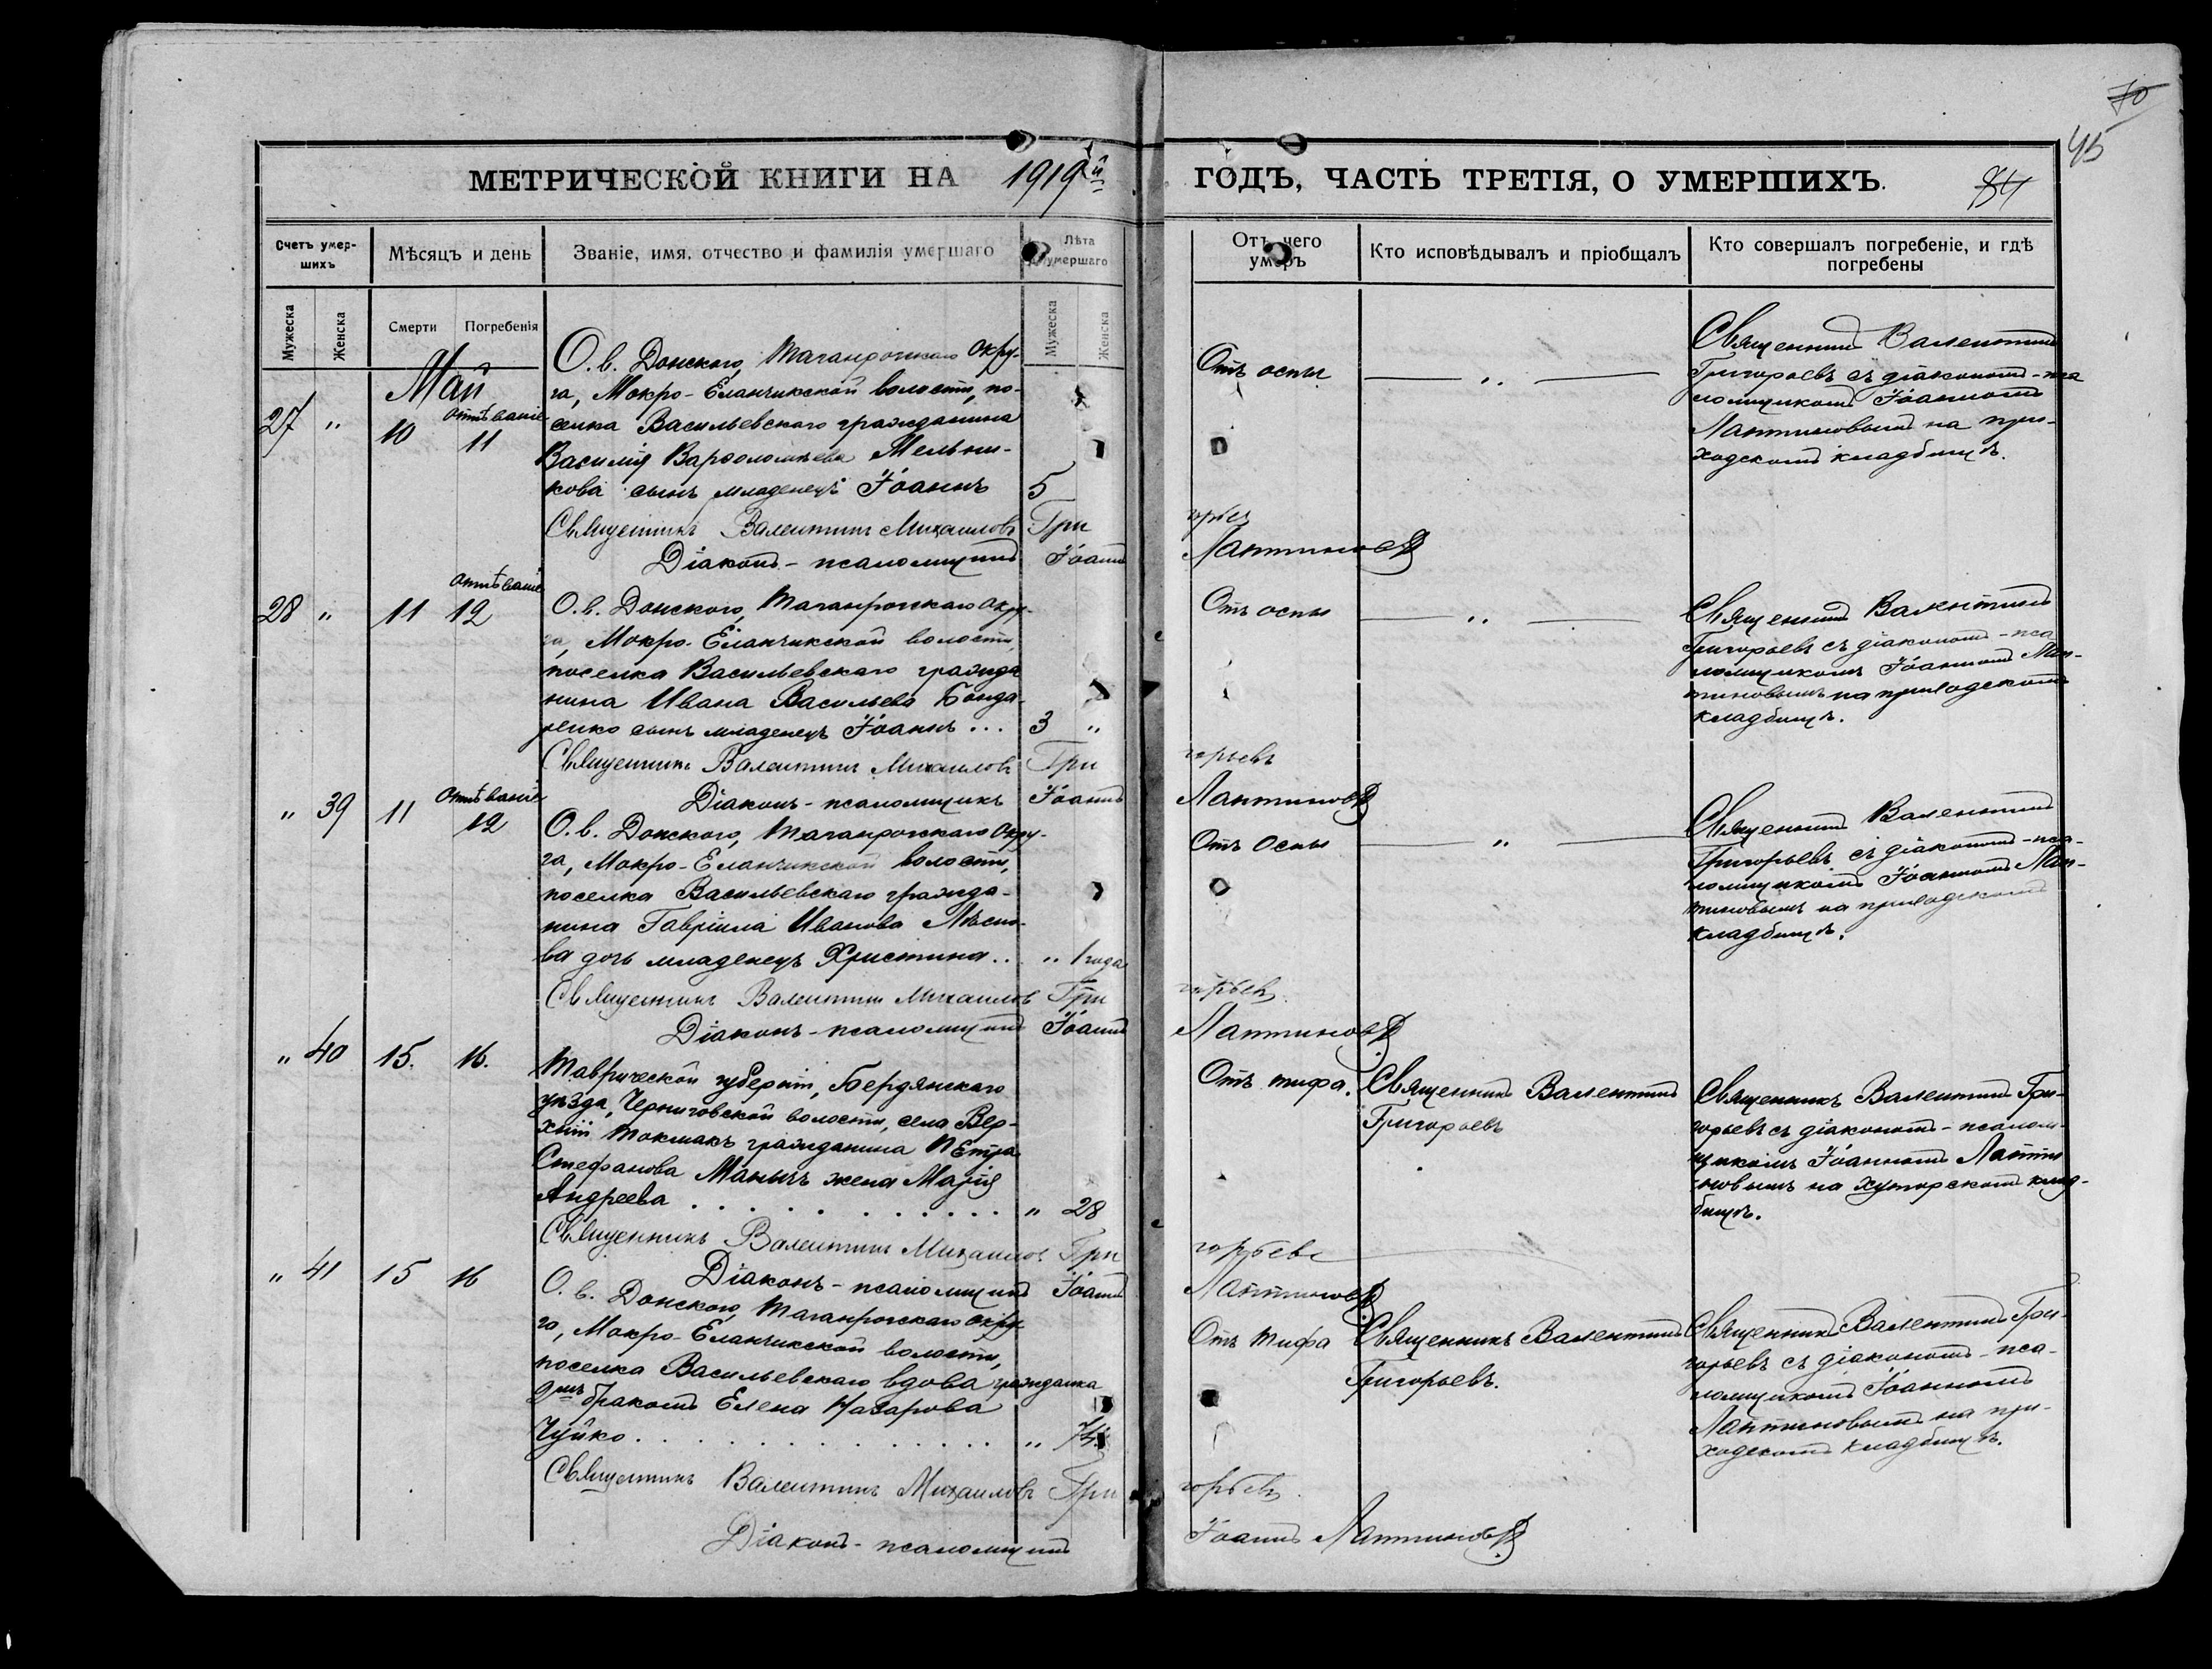 70
45
МЕТРИЧЕСКОЙ КНИГИ НА 1919й
ГОДЪ, ЧАСТЬ ТРЕТІЯ, О УМЕРШИХЪ.
84
Счетъ умер-
шихъ
Мѣсяцъ и день
Званіе, имя, отчество и фамилія умершаго
Лѣта
умершаго
Мужеска
Женска
Смерти
Погребенія
Мужеска
Женска
Отъ чего
умеръ
Кто исповѣдывалъ и пріобщалъ
Кто совершалъ погребеніе, и гдѣ
погребены
Май
27 " 10
отпѣваніе
11
О. в. Донского, Таганрогскаго окру-
га, Мокро-Еланчикской волости, по-
селка Васильевскаго гражданина
Василія Варѳоломѣева Мельни-
кова сынъ младенецъ Іоаннъ 5
Отъ оспы
— " —
Священникъ Валентинъ
Григорьевъ съ діакономъ-пса
ломщикомъ Іоанномъ
Лаптиновымъ на при-
ходскомъ кладбищѣ.
Священникъ Валентинъ Михаиловъ Гри
горьевъ
Діаконъ-псаломщикъ Іоаннъ
Лаптиновъ
28 " 11
отпѣваніе
12
О. в. Донского, Таганрогскаго окру-
га, Мокро-Еланчикской волости,
поселка Васильевскаго гражда
нина Ивана Васильева Бонда-
ренко сынъ младенецъ Іоаннъ ... 3 "
Отъ оспы
— " —
Священникъ Валентинъ
Григорьевъ съ діакономъ-пса
ломщикомъ Іоанномъ Лап-
тиновымъ на приходскомъ
кладбищѣ.
Священникъ Валентинъ Михаиловъ Гри
горьевъ
Діаконъ-псаломщикъ Іоаннъ
Лаптиновъ
" 39 11
Отпѣваніе
12
О. в. Донского, Таганрогскаго окру-
га, Мокро-Еланчикской волости,
поселка Васильевскаго гражда-
нина Гавріила Иванова
дочь младенецъ Христина .. " 1 года
Отъ Оспы
— " —
Священникъ Валентинъ
Григорьевъ съ діакономъ-пса-
ломщикомъ Іоанномъ Лап-
тиновымъ на приходскомъ
кладбищѣ.
Священникъ Валентинъ Михаилов Гри
горьевъ
Діаконъ-псаломщикъ Іоаннъ
Лаптиновъ
" 40 15. 16.
Таврической губерніи, Бердянскаго
уѣзда, Черниговской волости, села Вер-
хній Токмакъ гражданина Петра
Стефанова Манычъ жена Марія
Андреева . . . . . . . . . . . " 28
Отъ тифа.
Священникъ Валентинъ
Григорьевъ
Священникъ Валентинъ Гри-
горьевъ съ діакономъ-псалом-
щикомъ Іоанномъ Лапти
новымъ на хуторскомъ клад-
бищѣ.
Священникъ Валентинъ Михаилов Гри
горьевъ
Діаконъ-псаломщикъ Іоаннъ
Лаптиновъ
" 41 15 16
О. в. Донского, Таганрогскаго окру-
га, Мокро-Еланчикской волости,
поселка Васильевскаго вдова гражданка
бракомъ Елена Назарова
Чуйко . . . . . . . . . . . . " 74
Отъ тифа
Священникъ Валентинъ
Григорьевъ.
Священникъ Валентинъ Гри-
горьевъ съ діакономъ-пса-
ломщикомъ Іоанномъ
Лаптиновымъ на при-
ходскомъ кладбищѣ.
Священникъ Валентинъ Михаиловъ Гри
горьевъ.
Діаконъ-псаломщикъ
Іоаннъ Лаптиновъ